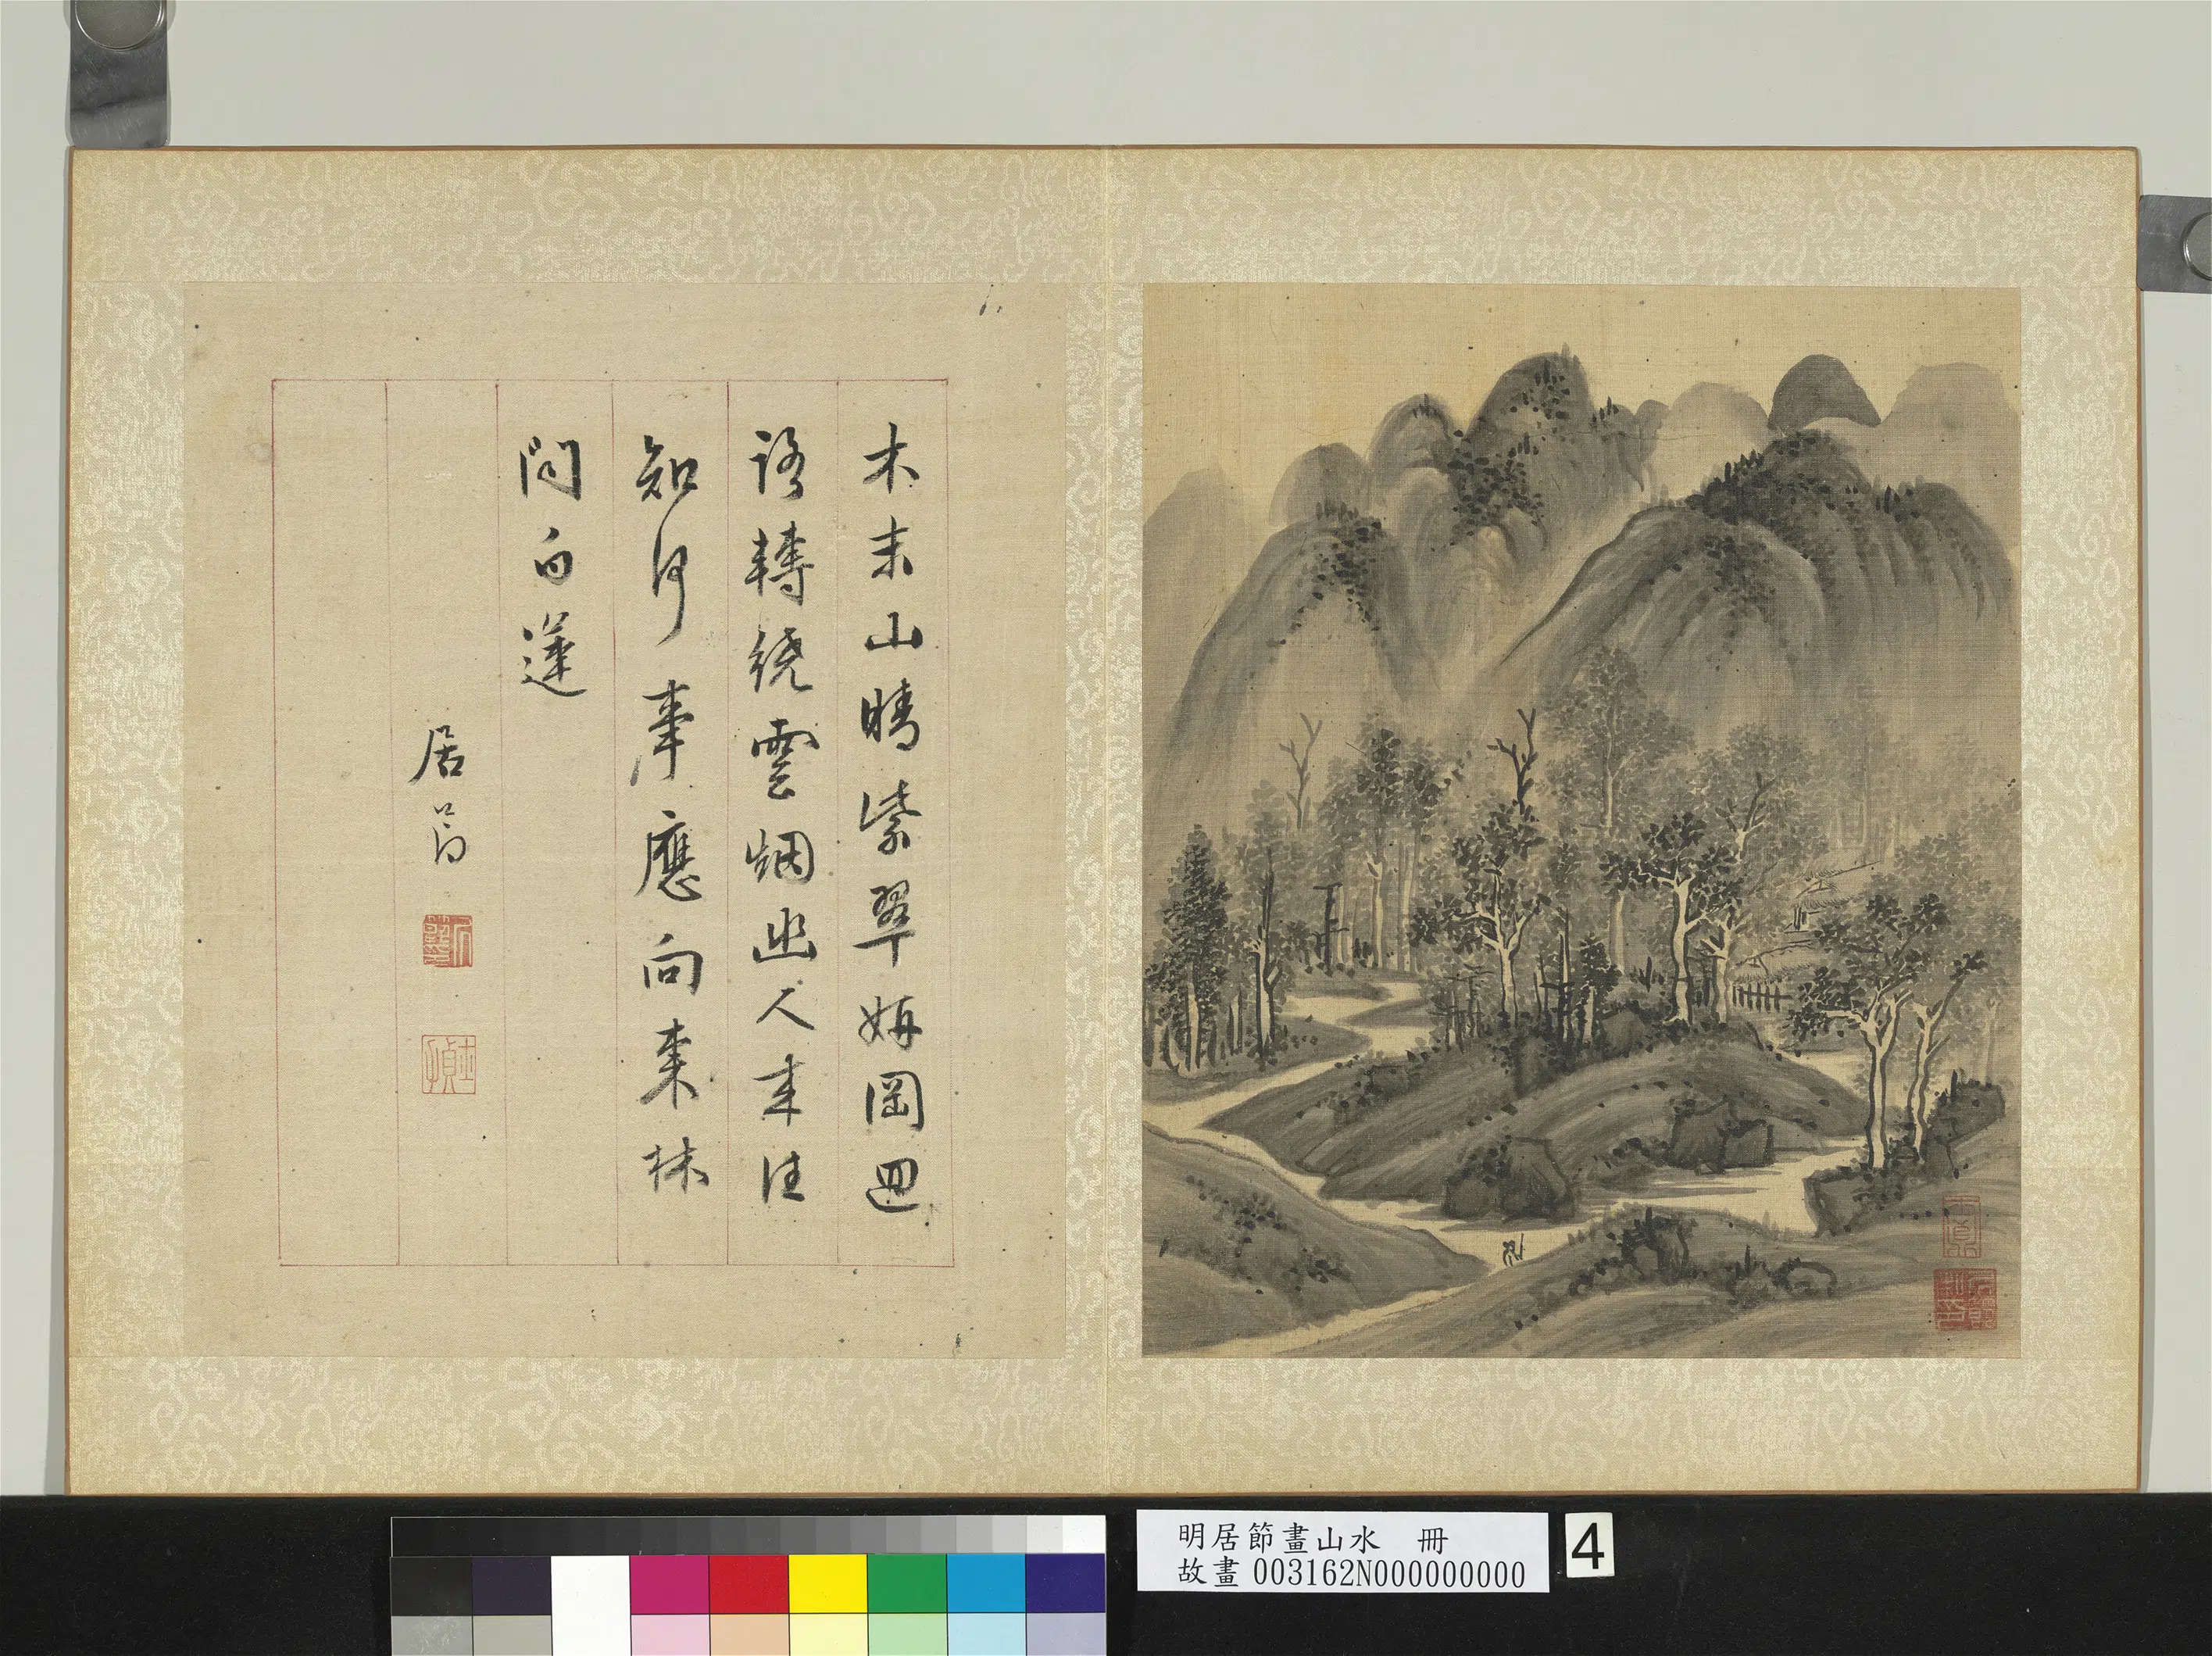 木末山晴紫翠妍岡迴
路轉繞雲烟幽人來往
知何事應向東林
問白蓮
居節
明居節畫山水 冊
故畫003162N000000000
4